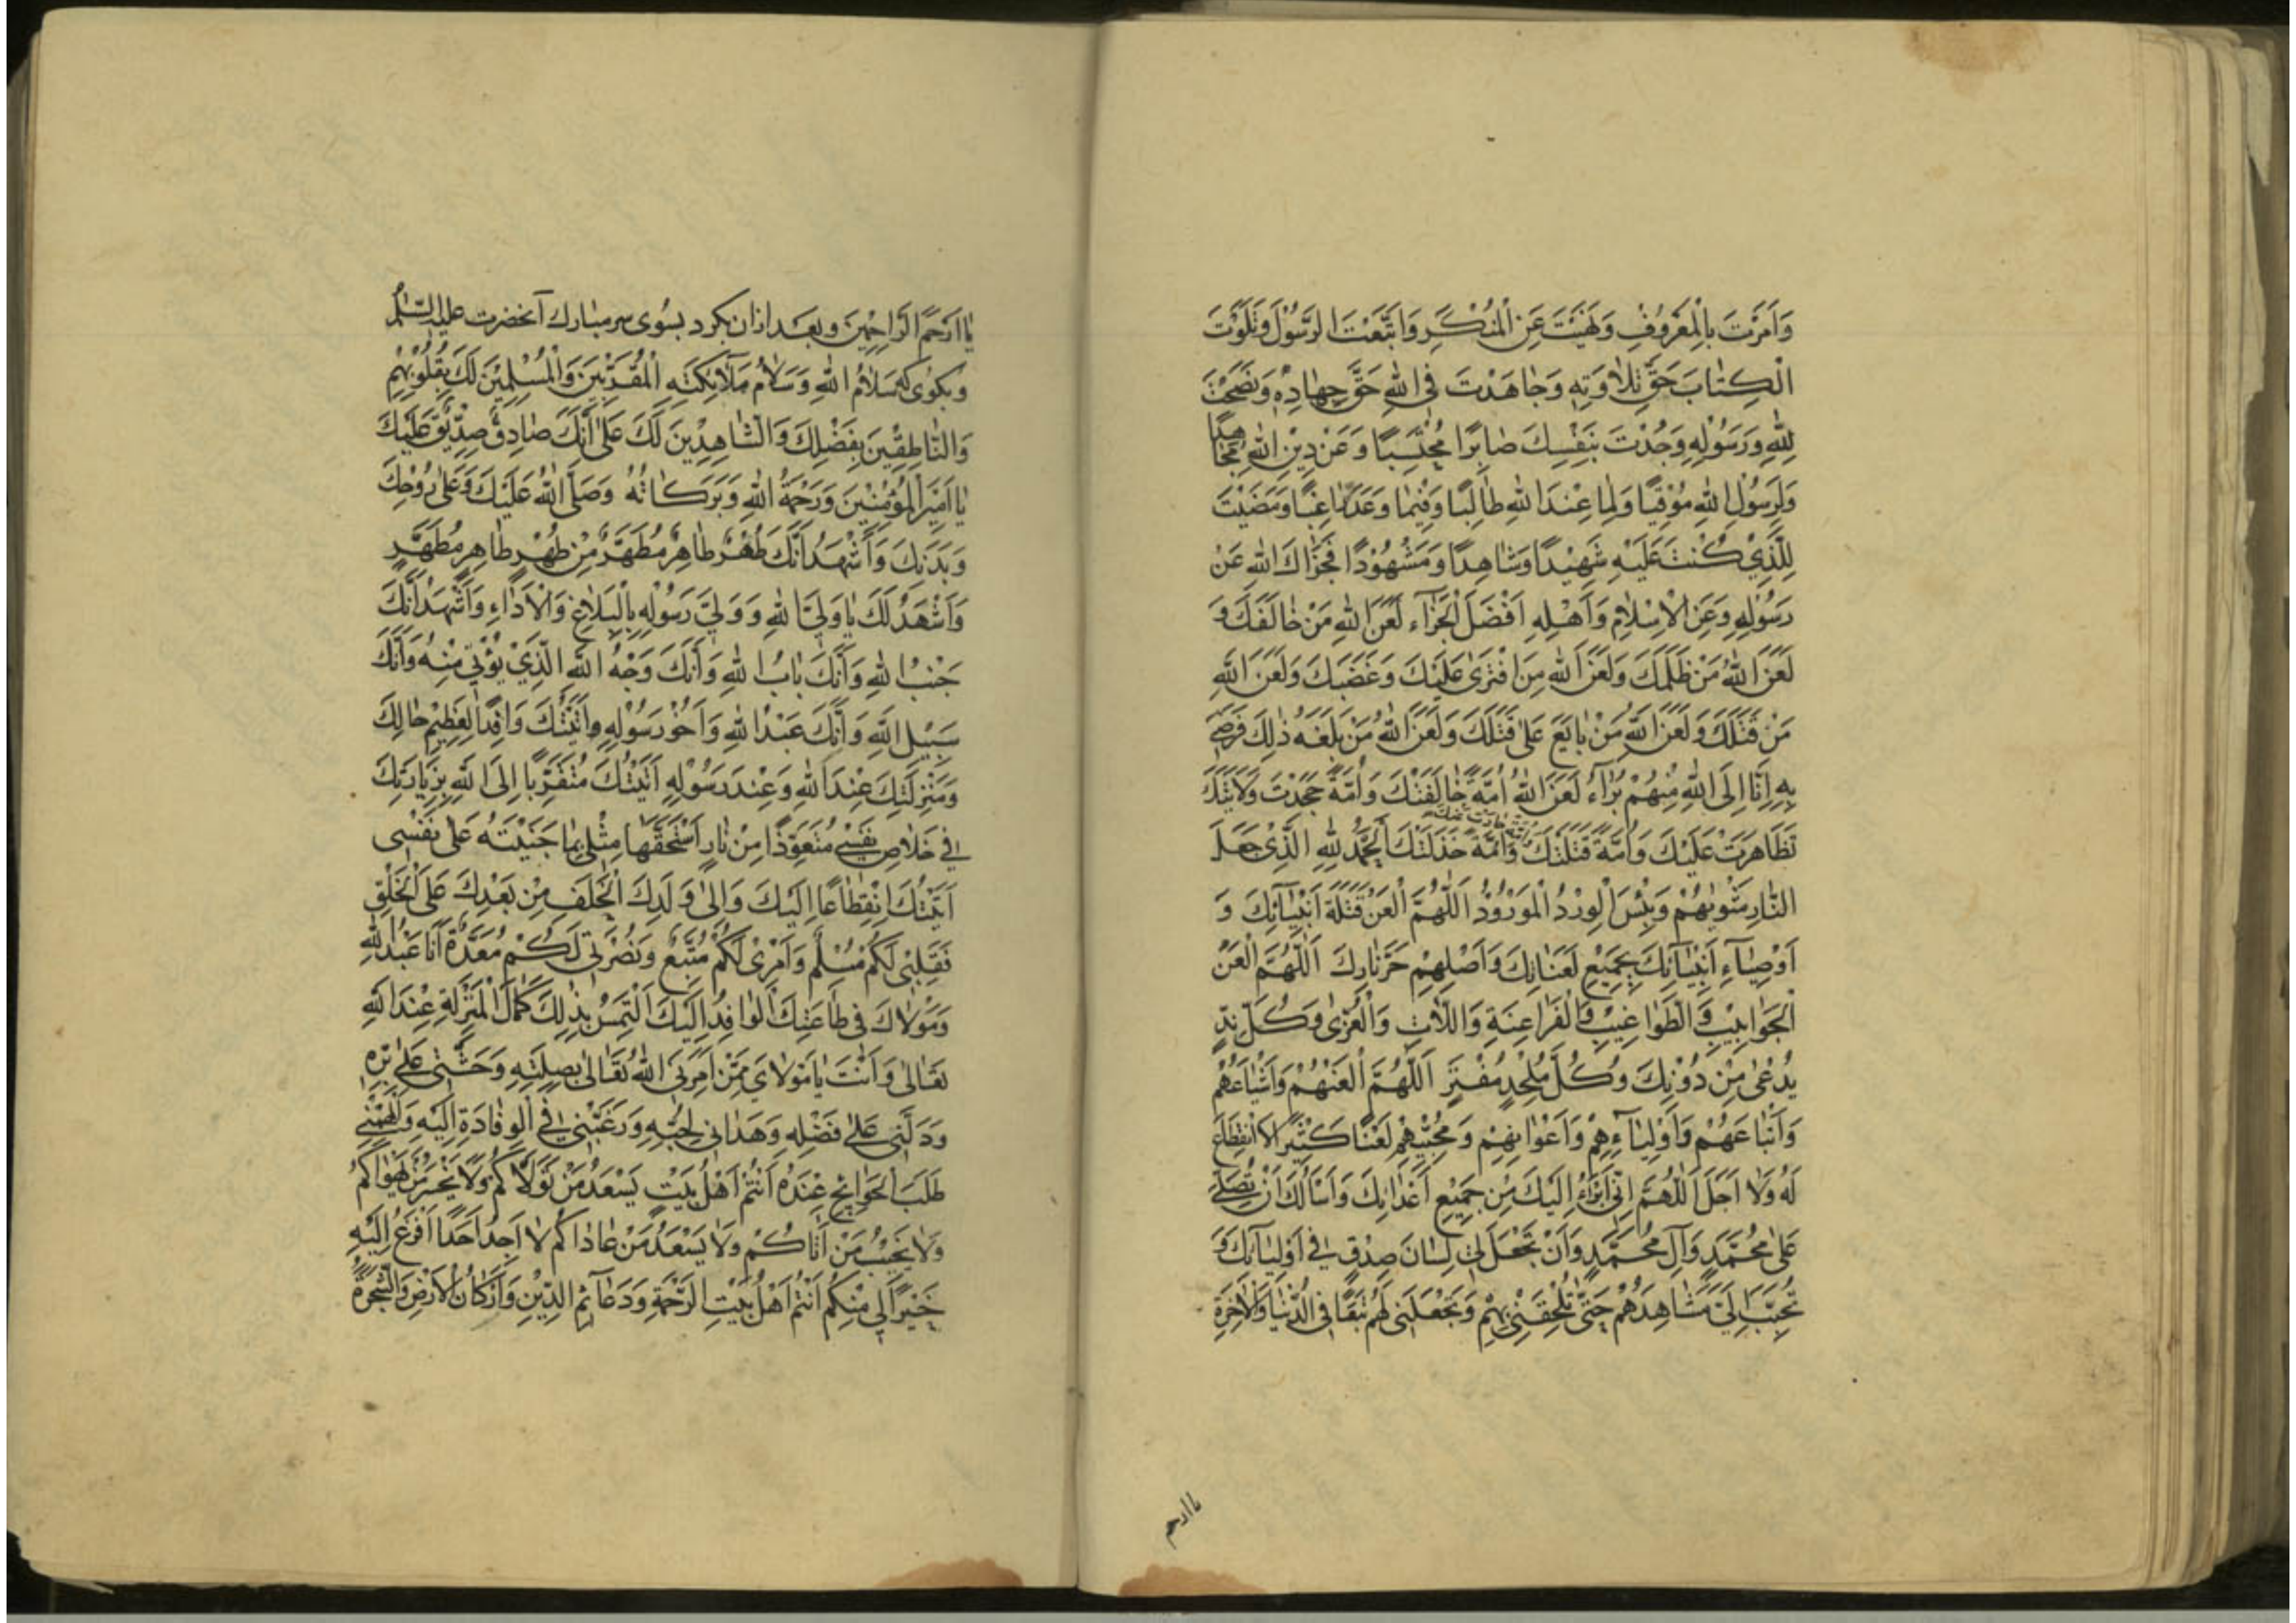 وَاَمَرْتَ بِالْمَعْرُوفِ وَنَهَيْتَ عَنِ الْمُنْكَرِ وَاتَّبَعْتَ الرَّسُوْلَ وَتَلَوْتَ
الْكِتَابَ حَقَّ تِلَاوَتِهِ وَجَاهَدْتَ فِى اللهِ حَقَّ جِهَادِهِ وَنَصَحْتَ
لِلّٰهِ وَرَسُوْلِهِ وَجُدْتَ بِنَفْسِكَ صَابِرًا مُحْتَسِبًا وَعَنْ دِيْنِ اللهِ مُجَاهِدًا
وَلِرَسُوْلِ اللهِ مُوْقِيًا وَلِمَا عِنْدَ اللهِ طَالِبًا وَفِيْمَا وَعَدَ رَاغِبًا وَمَضَيْتَ
لِلَّذِيْ كُنْتَ عَلَيْهِ شَهِيْدًا وَشَاهِدًا وَمَشْهُوْدًا فَجَزَاكَ اللهِ عَنْ
رَسُوْلِهِ وَعَنِ الْاِسْلَامِ وَاَهْلِهِ اَفْضَلَ الْجَزَآءِ لَعَنَ اللهِ مَنْ خَالَفَكَ وَ
لَعَنَ اللهُ مَنْ ظَلَمَكَ وَلَعَنَ اللهِ مَنِ افْتَرَى عَلَيْكَ وَغَضَبَكَ وَلَعَنَ اللهِ
مَنْ قَتَلَكَ وَلَعَنَ اللهِ مَنْ بَايَعَ عَلٰى قَتْلِكَ وَلَعَنَ اللهُ مَنْ بَلَغَهُ ذٰلِكَ فَرَضِيَ
بِهِ اِنَّا اِلَى اللهِ مِنْهُمْ بُرَآءُ لَعَنَ اللهُ اُمَّةً خَالَفَتْكَ وَاُمَّةً جَحَدَتْ وَلَايَتَكَ
تَظَاهَرَتْ عَلَيْكَ وَاُمَّةً قَتَلَتْكَ وَاُمَّةً خَذَلَتْكَ اَلْحَمْدُ لِلّٰهِ الَّذِىْ جَعَلَ
النَّارَ مَثْوٰيهُمْ وَبِئْسَ الْوِرْدُ الْمَوْرُوْدُ اَللّٰهُمَّ الْعَنْ قَتَلَةَ اَنْبِيَآئِكَ وَ
اَوْصِيَآءِ اَنْبِيَآئِكَ بِجَمِيْعِ لَعَنَاتِكَ وَاَصْلِهِمْ حَرَّ نَارِكَ اَللّٰهُمَّ الْعَنْ
الْجَوَابِيْبِ وَالطَّوَاغِيْبِ وَالْفَرَاعِنَةِ وَاللَّاتِ وَالْعُزّٰى وَكُلَّ نِدٍّ
يُدْعٰى مِنْ دُوْنِكَ وَكُلَّ مُلْحِدٍ مُفْتَرٍ اَللّٰهُمَّ الْعَنْهُمْ وَاَشْيَاعَهُمْ
وَاَتْبَاعَهُمْ وَاَوْلِيَآءِهِمْ وَاَعْوَانِهِمْ وَمُحِبِّيْهِمْ لَعْنًا كَثِيْرًا لَا انْقِطَاعَ
لَهُ وَلَا اَجَلَ اَللّٰهُمَّ اِنِّىْ اَبْرَاُ اِلَيْكَ مِنْ جَمِيْعِ اَعْدَائِكَ وَاَسْاَلُكَ اَنْ تُصَلِّيَ
عَلٰى مُحَمَّدٍ وَآلِ مُحَمَّدٍ وَاَنْ تَجْعَلَ لِىْ لِسَانَ صِدْقٍ فِىْ اَوْلِيَآئِكَ وَ
تُحَبِّبَ اِلَىَّ مَشَاهِدَهُمْ حَتّٰى تُلْحِقَنِىْ بِهِمْ وَتَجْعَلَنِىْ لَهُمْ تَبَعًا فِى الدُّنْيَا وَالْاٰخِرَةِ
يا ارحم
يَا اَرْحَمَ الرَّاحِمِيْنَ وبعد ازان بكرد بسوى سر مبارك آنحضرت عليه السّلام
وبكوى كه سَلَامُ اللهِ وَسَلَامُ مَلَآئِكَتِهِ الْمُقَرَّبِيْنَ وَالْمُسْلِمِيْنَ لَكَ بِقُلُوْبِهِمْ
وَالنَّاطِقِيْنَ بِفَضْلِكَ وَالشَّاهِدِيْنَ لَكَ عَلٰى اَنَّكَ صَادِقٌ صِدِّيْقٌ عَلَيْكَ
يَا اَمِيْرَ الْمُؤْمِنِيْنَ وَرَحْمَةُ اللهِ وَبَرَكَاتُهُ وَصَلَّى اللهُ عَلَيْكَ وَعَلٰى رُوْحِكَ
وَبَدَنِكَ وَاَشْهَدُ اَنَّكَ طُهْرٌ طَاهِرٌ مُطَهَّرٌ مِنْ طُهْرٍ طَاهِرٍ مُطَهَّرٍ
وَاَشْهَدُ لَكَ يَا وَلِيَّ اللهِ وَوَلِيَّ رَسُوْلِهِ بِالْبَلَاغِ وَالْاَدَاءِ وَاَشْهَدُ اَنَّكَ
جَنْبُ اللهِ وَاَنَّكَ بَابُ اللهِ وَاَنَّكَ وَجْهُ اللهِ الَّذِيْ يُؤْتٰى مِنْهُ وَاَنَّكَ
سَبِيْلِ اللهِ وَاَنَّكَ عَبْدُ اللهِ وَاَخُوْ رَسُوْلِهِ وَاَتَيْتُكَ وَافِدًا لِعَظِيْمِ حَالِكَ
وَمَنْزِلَتِكَ عِنْدَ اللهِ وَعِنْدَ رَسُوْلِهِ اَتَيْتُكَ مُتَقَرِّبًا اِلَى اللهِ بِزِيَارَتِكَ
فِى خَلَاصِ نَفْسِىْ مُتَعَوِّذًا مِنْ نَارٍ اَسْتَحَقَّهَا مِثْلِىْ بِمَا جَنَيْتُهُ عَلٰى نَفْسِى
اَتَيْتُكَ اِنْقِطَاعًا اِلَيْكَ وَاِلٰى وَلَدِكَ الْخَلَفِ مِنْ بَعْدِكَ عَلَى الْخَلْقِ
فَقَلْبِىْ لَكُمْ مُسْلِمٌ وَاَمْرِىْ لَكُمْ مُتَّبَعٌ وَنُصْرَتِىْ لَكُمْ مُعَدَّةٌ اَنَا عَبْدُ اللهِ
وَمَوْلَاكَ فِى طَاعَتِكَ الْوَافِدُ اِلَيْكَ اَلْتَمِسُ بِذٰلِكَ كَمَالَ الْمَنْزِلَةِ عِنْدَ اللهِ
تَعَالٰى وَاَنْتَ يَا مَوْلَاىَ مِمَّنْ اَمَرَنِىَ اللهُ تَعَالٰى بِصِلَتِهِ وَحَثَّنِىْ عَلٰى بِرِّهِ
وَدَلَّنِىْ عَلٰى فَضْلِهِ وَهَدَانِى لِحُبِّهِ وَرَغَّبَنِىْ فِى الْوِفَادَةِ اِلَيْهِ وَاَلْهَمَنِىْ
طَلَبَ الْحَوَائِجِ عِنْدَهُ اَنْتُمْ اَهْلُ بَيْتٍ يَسْعَدُ مَنْ تَوَلَّاكُمْ وَلَا يَخْسَرُ مَنْ يَهْوَاكُمْ
وَلَا يَخِيْبُ مَنْ اَتَاكُمْ وَلَا يَسْعَدُ مَنْ عَادَاكُمْ لَا اَجِدُ اَحَدًا اَفْزَعُ اِلَيْهِ
خَيْرًا لِىْ مِنْكُمْ اَنْتُمْ اَهْلُ بَيْتِ الرَّحْمَةِ وَدَعَآئِمُ الدِّيْنِ وَاَرْكَانُ الْاَرْضِ وَالشَّجَرَةُ